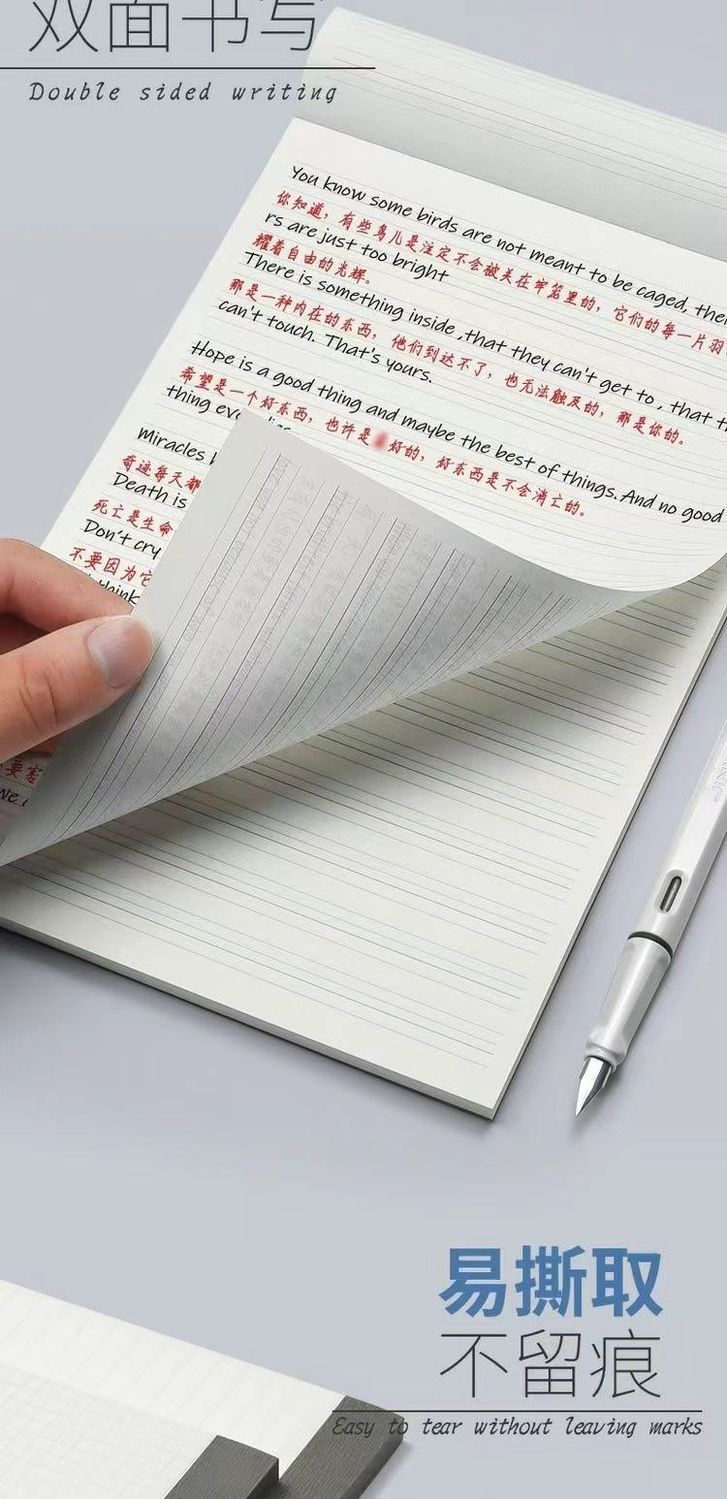 双面书写
Double sided writing
You know some birds are not meant to be caged, their
你知道，有些鸟儿是注定不会被关在牢笼里的，它们的每一片羽
rs are just too bright
耀着自由的光辉。
There is something inside ,that they can't get to , that th
那是一种内在的东西，他们到达不了，也无法触及的，那是你的。
can't touch. That's yours.
Hope is a good thing and maybe the best of things. And no good
希望是一个好东西，也许是 好的，好东西是不会消亡的。
thing eve
Miracles
奇迹每天都
Death is
死亡是生命
Don't cry
不要因为它
think
要害
we
易撕取
不留痕
Easy to tear without leaving marks